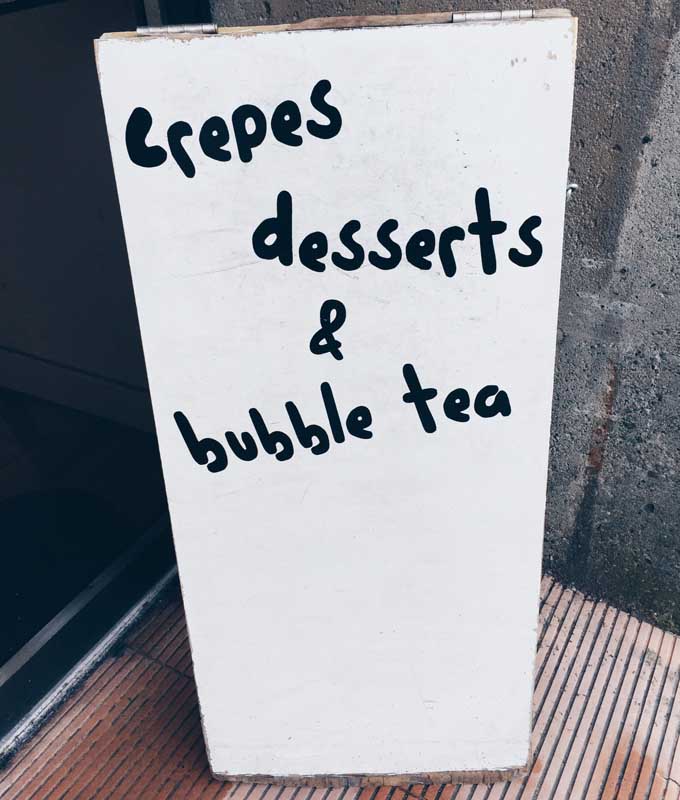 Crepes
desserts
&
bubble tea